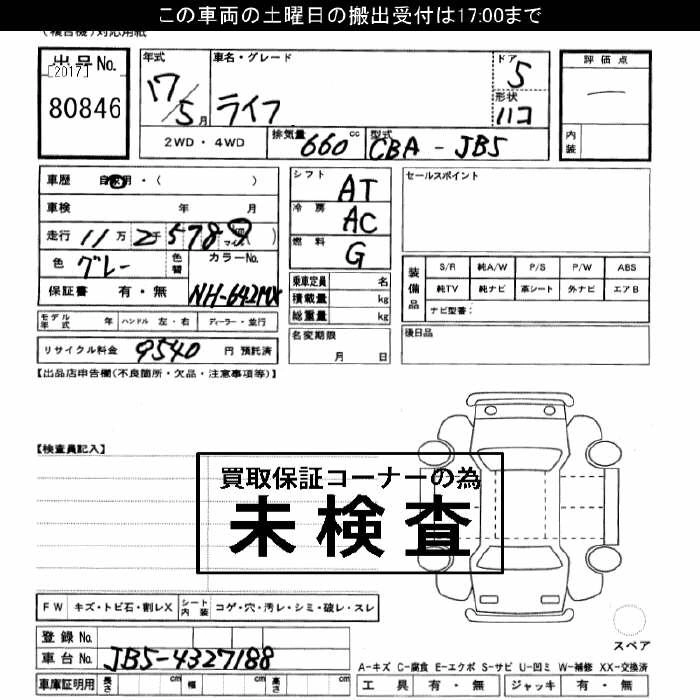 この車両の土曜日の搬出受付は17:00まで
(複合機)対応用紙
出品No. [2017] 80846
年式 17/5月
車名・グレード ライフ
ドア 5
形状 ハコ
評価点 ー
内装
2WD・4WD 排気量 660cc 型式 CBA-JB5
車歴 自家用・( )
車検 年 月
走行 11万2千578
色 グレー 色替 カラーNo. NH-642MX
保証書 有・無
シフト AT
冷房 AC
燃料 G
乗車定員 名
積載量 kg
総重量 kg
セールスポイント
装備品 S/R 純A/W P/S P/W ABS
純TV 純ナビ 革シート 外ナビ エアB
ナビ型番:
モデル年式 年 ハンドル 左・右 ディーラー・並行
名変期限 月 日
後日品
リサイクル料金 9540 円 預託済
【出品店申告欄(不良箇所・欠品・注意事項等)】
【検査員記入】
買取保証コーナーの為
未検査
FW キズ・トビ石・割レX シート内装 コゲ・穴・汚レ・シミ・破レ・スレ
スペア
登録No.
車台No. JB5-4327188
A-キズ C-腐食 E-エクボ S-サビ U-凹ミ W-補修 XX-交換済
車庫証明用 長さ cm 幅 cm 高さ cm
工具 有・無 ジャッキ 有・無